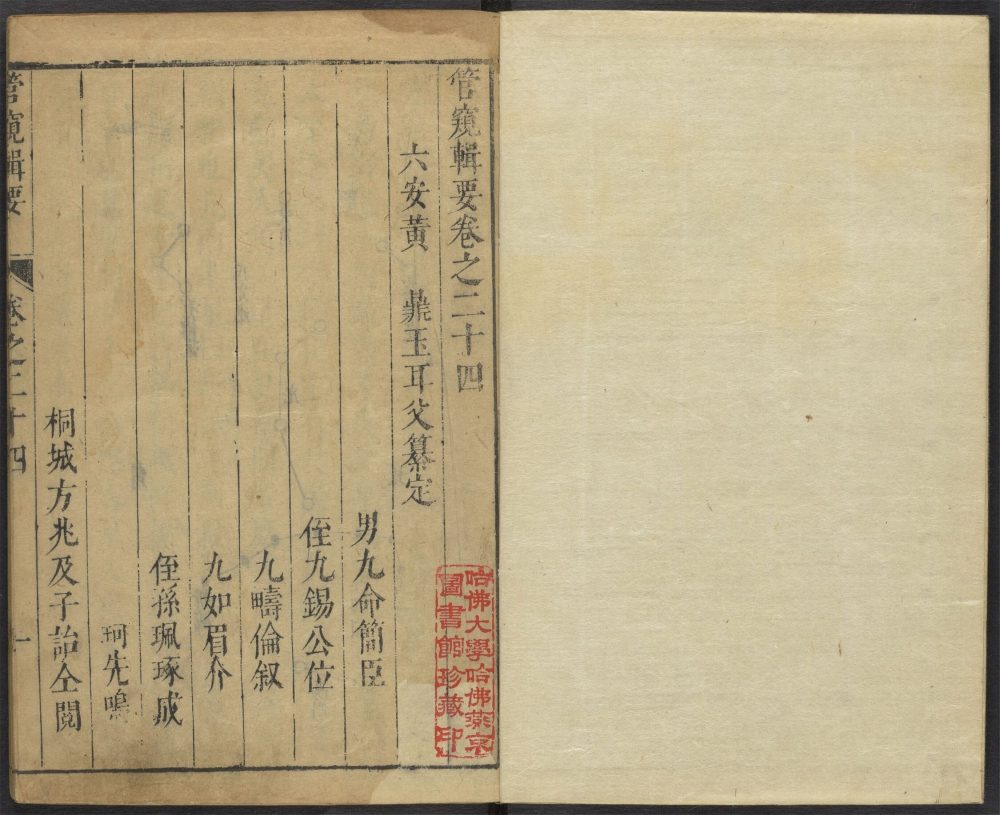 管窺輯要卷之二十四
六安黃 鼎玉耳父纂定
男九命簡臣
侄九錫公位
九疇倫叙
九如眉介
侄孫珮琢成
珂先鳴
桐城方兆及子詒仝閱
管窺輯要 卷之二十四 一
哈佛大學哈佛燕京
圖書館珍藏印